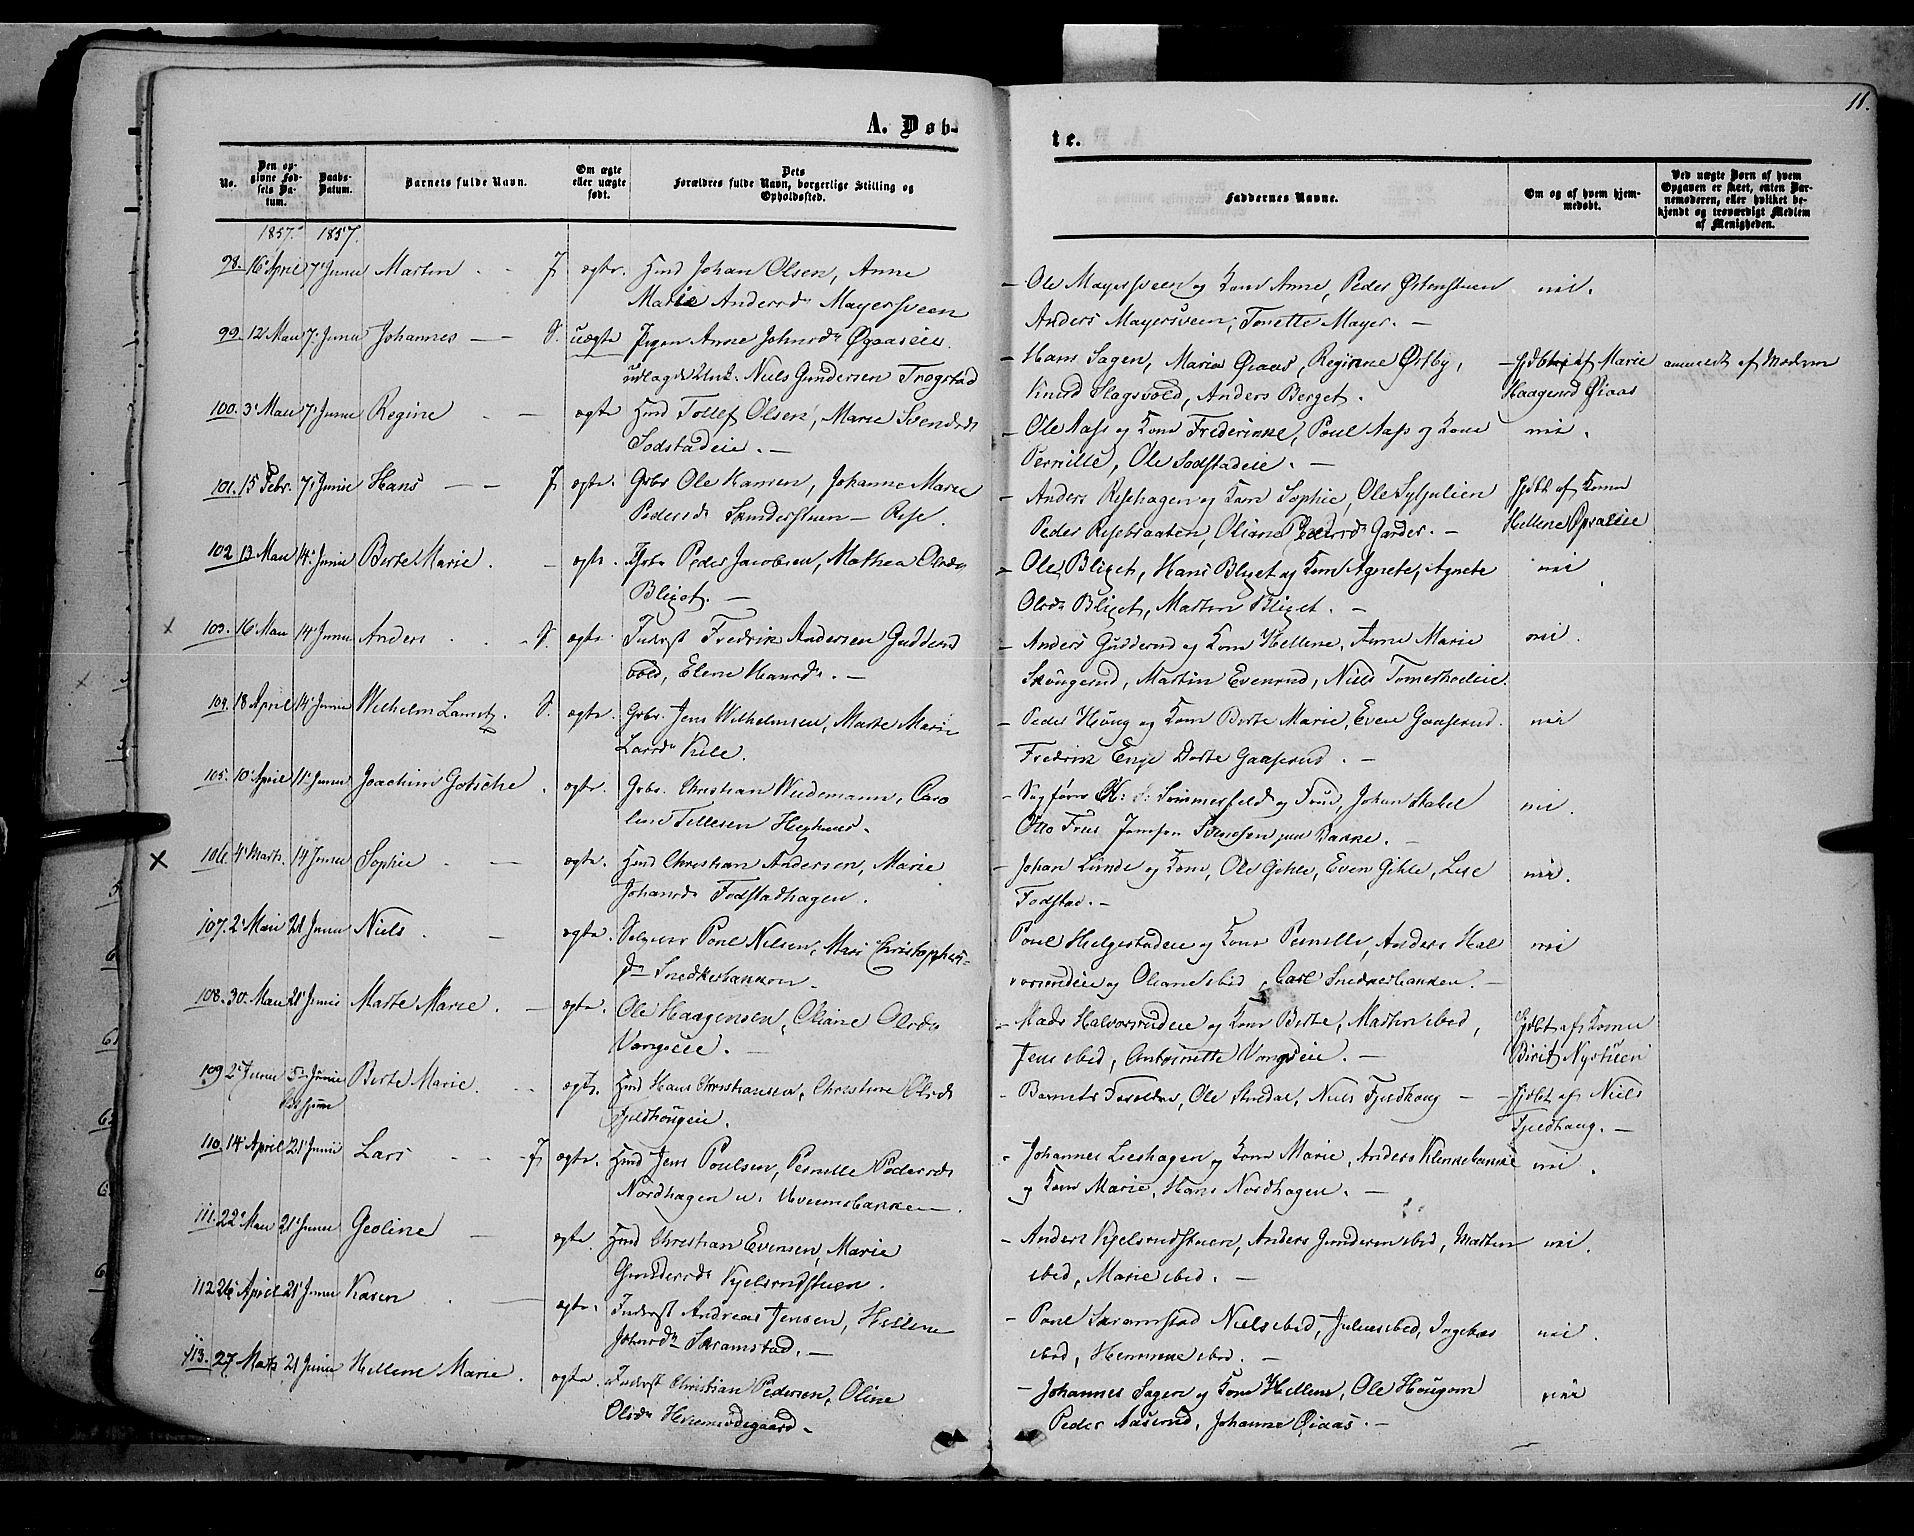 11.
A. Døb-
te.
No.
Den op-
givne Fød-
sels Da-
tum.
Daabs-
Datum.
Barnets fulde Navn.
Om ægte
eller uægte
født.
Dets
Forældres fulde Navn, borgerlige Stilling og
Opholdssted.
Faddernes Navne.
Om og af hvem hjem-
medøbt.
Ved uægte Børn af hvem
Opgaven er skeet, enten Bar-
nemoderen, eller hvilket be-
kjendt og troværdigt Medlem
af Menigheden.
1857. 1857.
98. 16 April 7 Junii Martin J ægte. Hmd Johan Olsen, Anne
Marie Andersd. Mayersveen
Ole Mayersveen og Kone Anne, Peder Østenstuen nei.
Anders Mayersveen, Tonette Mayer.
99. 12 Mai 7 Junii Johannes S. uægte Pigen Anne Johnsd. Øgaaseie.
udlagde Unk. Niels Gundersen Trogstad
Hans Sagen, Marie Øiaas, Regine Østby, hjdbt af Marie anmeldt af Modren
Knud Slagsvold, Anders Berget. Haagensd Øiaas
100. 3 Mai 7 Junii Regine ægte Hmd Tollef Olsen, Marie Svendsd.
Sodstadeie.
Ole Aas og Kone Frederikke, Poul Aas og Kone nei.
Pernille, Ole Sodstadeie.
101. 15 Febr. 7 Junii Hans J ægte. Grbr Ole Hansen, Johanne Marie
Pedersd. Rise.
Anders Risehagen og Kone Sophie, Ole hjdbt af Kone
Peder Risebraaten, Oliane Pedersd. Garder. Hellene
102 13 Mai 14 Junii Berte Marie. ægte. Peder Jacobsen, Mathea Olsd.
Bliset.
Ole Bliset, Hans Bliset og Kone Agnete, Agnete nei
Olsd. Bliset, Martin Bliset.
103. 16 Mai 14 Junii Anders S. ægte. Inderst Fredrik Andersen Gudderud
vold, Elene Hansd.
Anders Gudderud og Kone Hellene, Anne Marie nei.
Skougerud, Martin Evenrud, Niels
104. 18 April 14 Junii Wilhelm S. ægte. Grbr. Jens Wilhelmsen, Marte Marie
Larsd. Kile.
Peder Houg og Kone Berte Marie, Even Gaaserud. nei
Fredrik Enge Dorte Gaaserud.
105. 10 April 11 Junii Joachim Gotsche ægte. Grbr. Christian Weidemann, Caro
line Tellesen
Sagfører Sommerfeldt og Frue, Johan Stabel nei.
Otto Friis
106. 4 Marts. 14 Junii Sophie ægte. Hmd Christian Andersen, Marie
Johansd. Fodstadhagen.
Johan Lunde og Kone, Ole Gihle, Even Gihle, Lise nei.
Fodstad.
107. 2 Mai 21 Junii Niels ægte. Poul Nielsen, Mari Christophers-
d. Snedkerbakken.
Poul Helgestadeie og Kone Pernille, Anders Hal nei
vorsrudeie og Oliane ibid, Carl Snedkerbakken.
108. 30. Mai 21 Junii Marte Marie. ægte. Ole Haagensen, Oliane Olsd.
Vangseie.
Mads Halvorsrudeie og Kone Berte, Martin ibid, hjdbt af Kone
Jens ibid, Antonette Vangseie. Birit Nystuen
109 2 Junii 5 Junii Berte Marie. ægte. Hmd Hans Christiansen, Christine Olsd.
Fjeldhougeie.
Barnets Forældre, Ole Niels Fjeldhaug hjdbt af Niels
Fjeldhaug.
110. 14 April 21 Junii Lars J ægte. Hmd Jens Poulsen, Pernille Pedersd.
Nordhagen u. Hveemsbakken.
Johannes Lieshagen og Kone Marie, Anders nei
og Kone Marie, Hans Nordhagen.
111. 22 Mai 21 Junii Geoline ægte. Hmd Christian Evensen, Marie
Gundersd. Kjelsrudstuen.
Anders Kjelsrudstuen, Anders Gundersen ibid, Martin nei.
ibid, Marie ibid.
112 26 April 21 Junii Karen ægte. Inderst Andreas Jensen, Hellene
Johnsd. Skramstad.
Poul Skramstad Niels ibid, Julius ibid, Ingebor nei.
ibid, ibid.
113. 27 Marts 21 Junii Hellene Marie. ægte. Inderst Christian Pedersen, Oline
Olsd. Hveemsødegaard.
Johannes Sagen og Kone Hellene, Ole Hougom nei
Peder Aaserud, Johanne Øiaas.